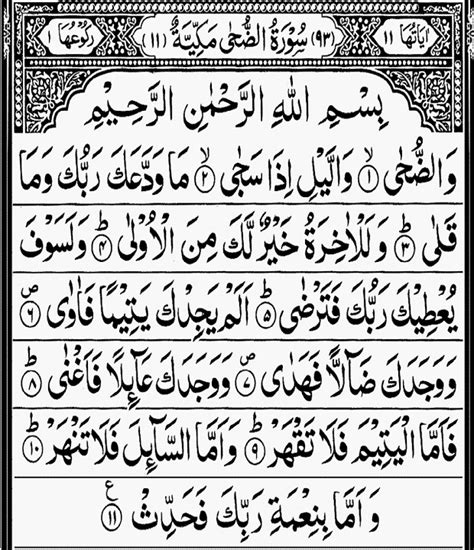 اٰیَاتُهَا ١١ (٩٣) سُوْرَةُ الضُّحٰى مَكِّیَّةٌ (١١) رُكُوْعُهَا ١
بِسْمِ اللّٰهِ الرَّحْمٰنِ الرَّحِیْمِ
وَالضُّحٰى ۙ﴿١﴾ وَالَّیْلِ اِذَا سَجٰى ۙ﴿٢﴾ مَا وَدَّعَكَ رَبُّكَ وَمَا
قَلٰى ؕ﴿٣﴾ وَلَلْاٰخِرَةُ خَیْرٌ لَّكَ مِنَ الْاُوْلٰى ؕ﴿٤﴾ وَلَسَوْفَ
یُعْطِیْكَ رَبُّكَ فَتَرْضٰى ؕ﴿٥﴾ اَلَمْ یَجِدْكَ یَتِیْمًا فَاٰوٰى ۪﴿٦﴾
وَوَجَدَكَ ضَآلًّا فَهَدٰى ۪﴿٧﴾ وَوَجَدَكَ عَآىِٕلًا فَاَغْنٰى ؕ﴿٨﴾
فَاَمَّا الْیَتِیْمَ فَلَا تَقْهَرْ ؕ﴿٩﴾ وَاَمَّا السَّآىِٕلَ فَلَا تَنْهَرْ ؕ﴿١٠﴾
وَاَمَّا بِنِعْمَةِ رَبِّكَ فَحَدِّثْ ﴿١١﴾ ع